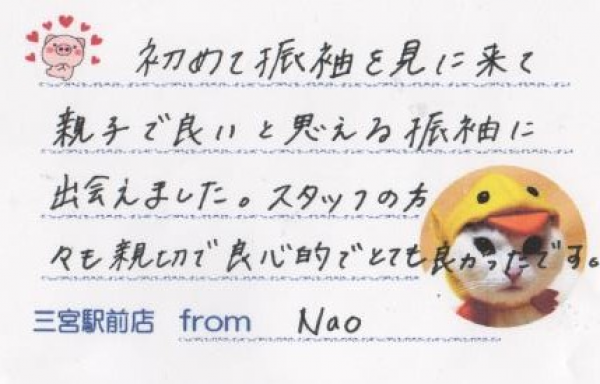 初めて振袖を見に来て
親子で良いと思える振袖に
出会えました。スタッフの方
々も親切で良心的でとても良かったです。
三宮駅前店 from Nao